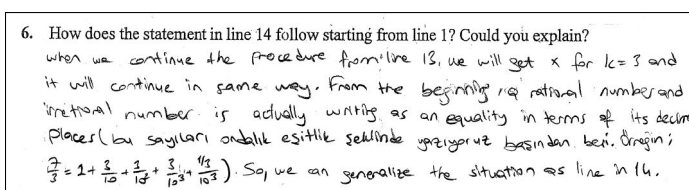 6. How does the statement in line 14 follow starting from line 1? Could you explain?
when we continue the procedure from line 13, we will get x for k=3 and
it will continue in same way. From the beginning, a rational number and
irrational number is actually writing as an equality in terms of its decim
places (bu sayıları ondalık eşitlik şeklinde yazıyoruz başından beri. Örneğin;
7/3 = 2 + 3/10 + 3/10² + 3/10³ + (1/3)/10³). So, we can generalize the situation as line in 14.